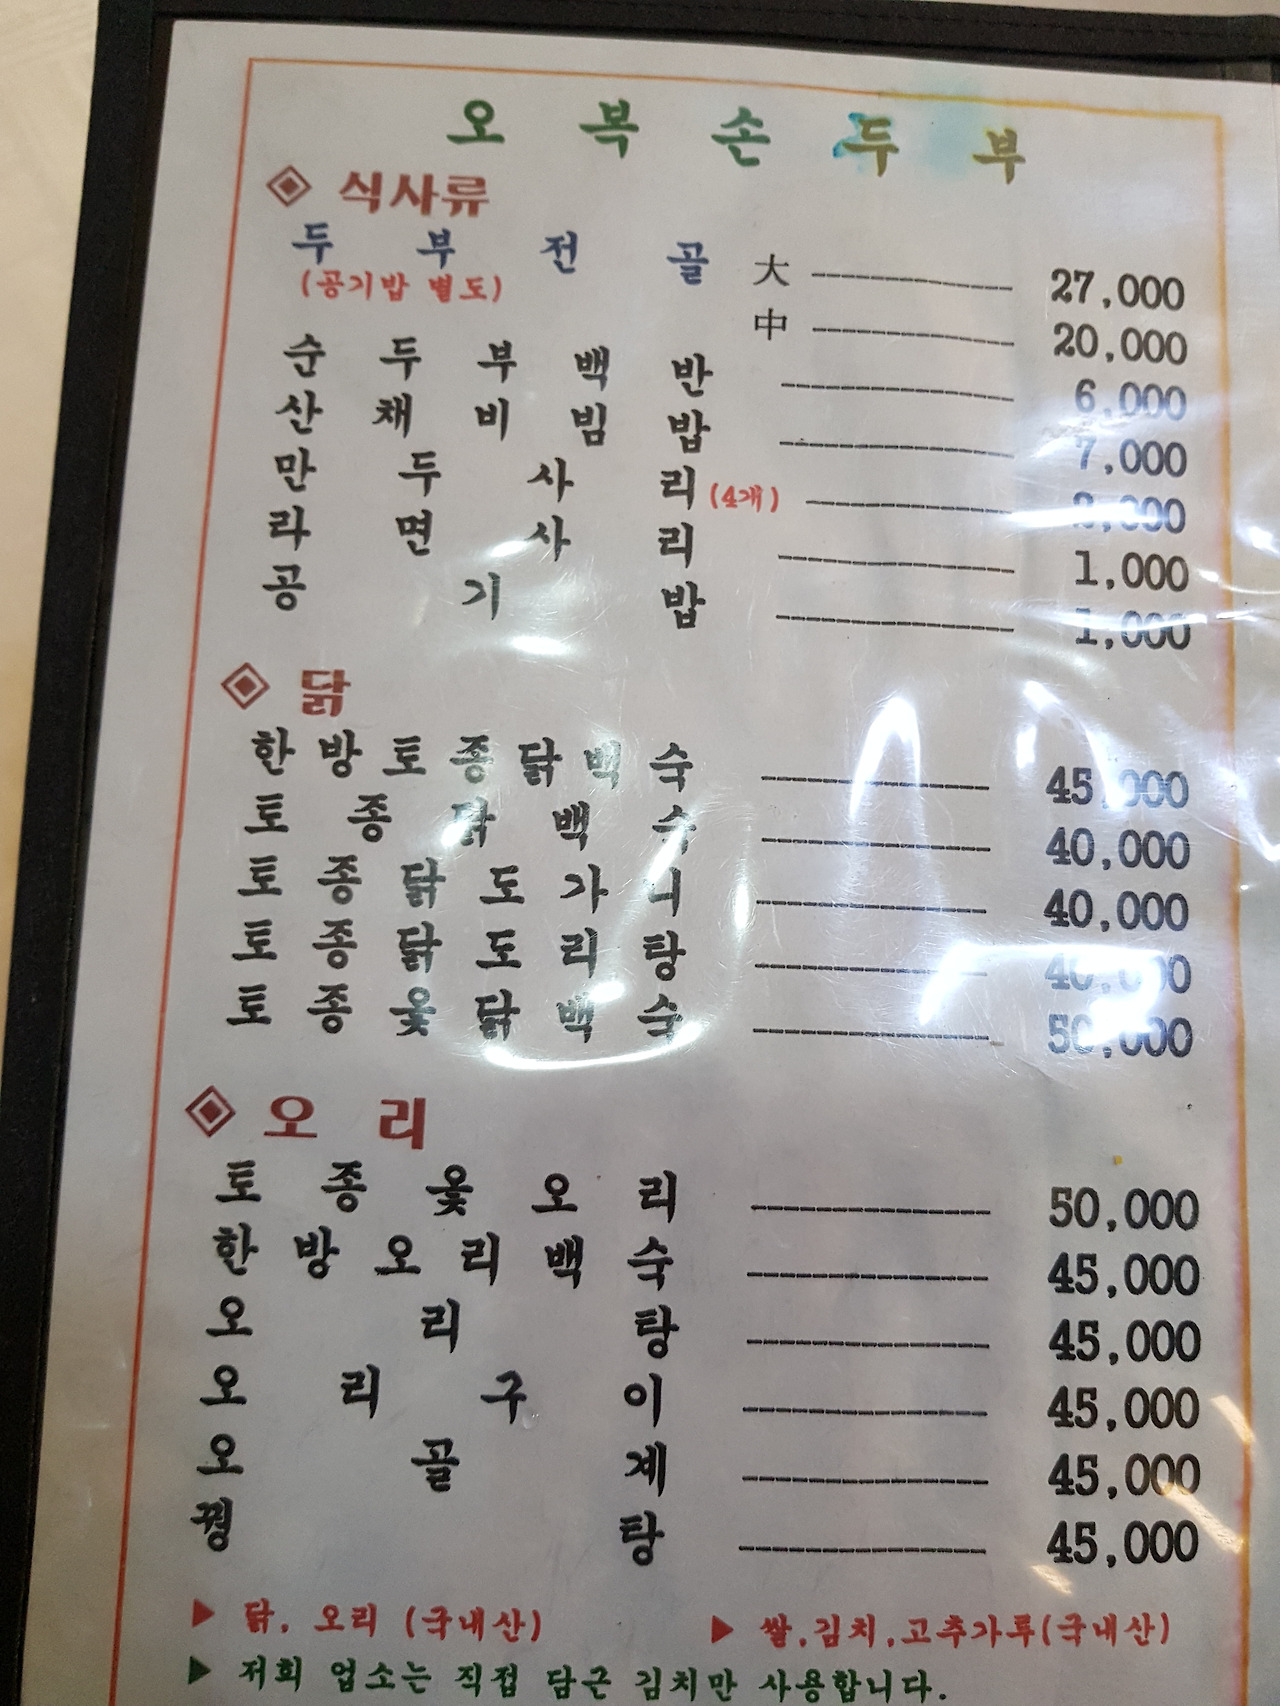 오복손두부
식사류
두부전골 大 27,000
(공기밥 별도) 中 20,000
순두부백반 6,000
산채비빔밥 7,000
만두사리 (4개)
라면사리 1,000
공기밥 1,000
닭
한방토종닭백숙 45,000
토종닭백숙 40,000
토종닭도가니 40,000
토종닭도리탕 40,000
토종옻닭백숙 50,000
오리
토종옻오리 50,000
한방오리백숙 45,000
오리탕 45,000
오리구이 45,000
오골계 45,000
꿩탕 45,000
▶ 닭, 오리 (국내산) ▶ 쌀,김치,고추가루(국내산)
▶ 저희 업소는 직접 담근 김치만 사용합니다.